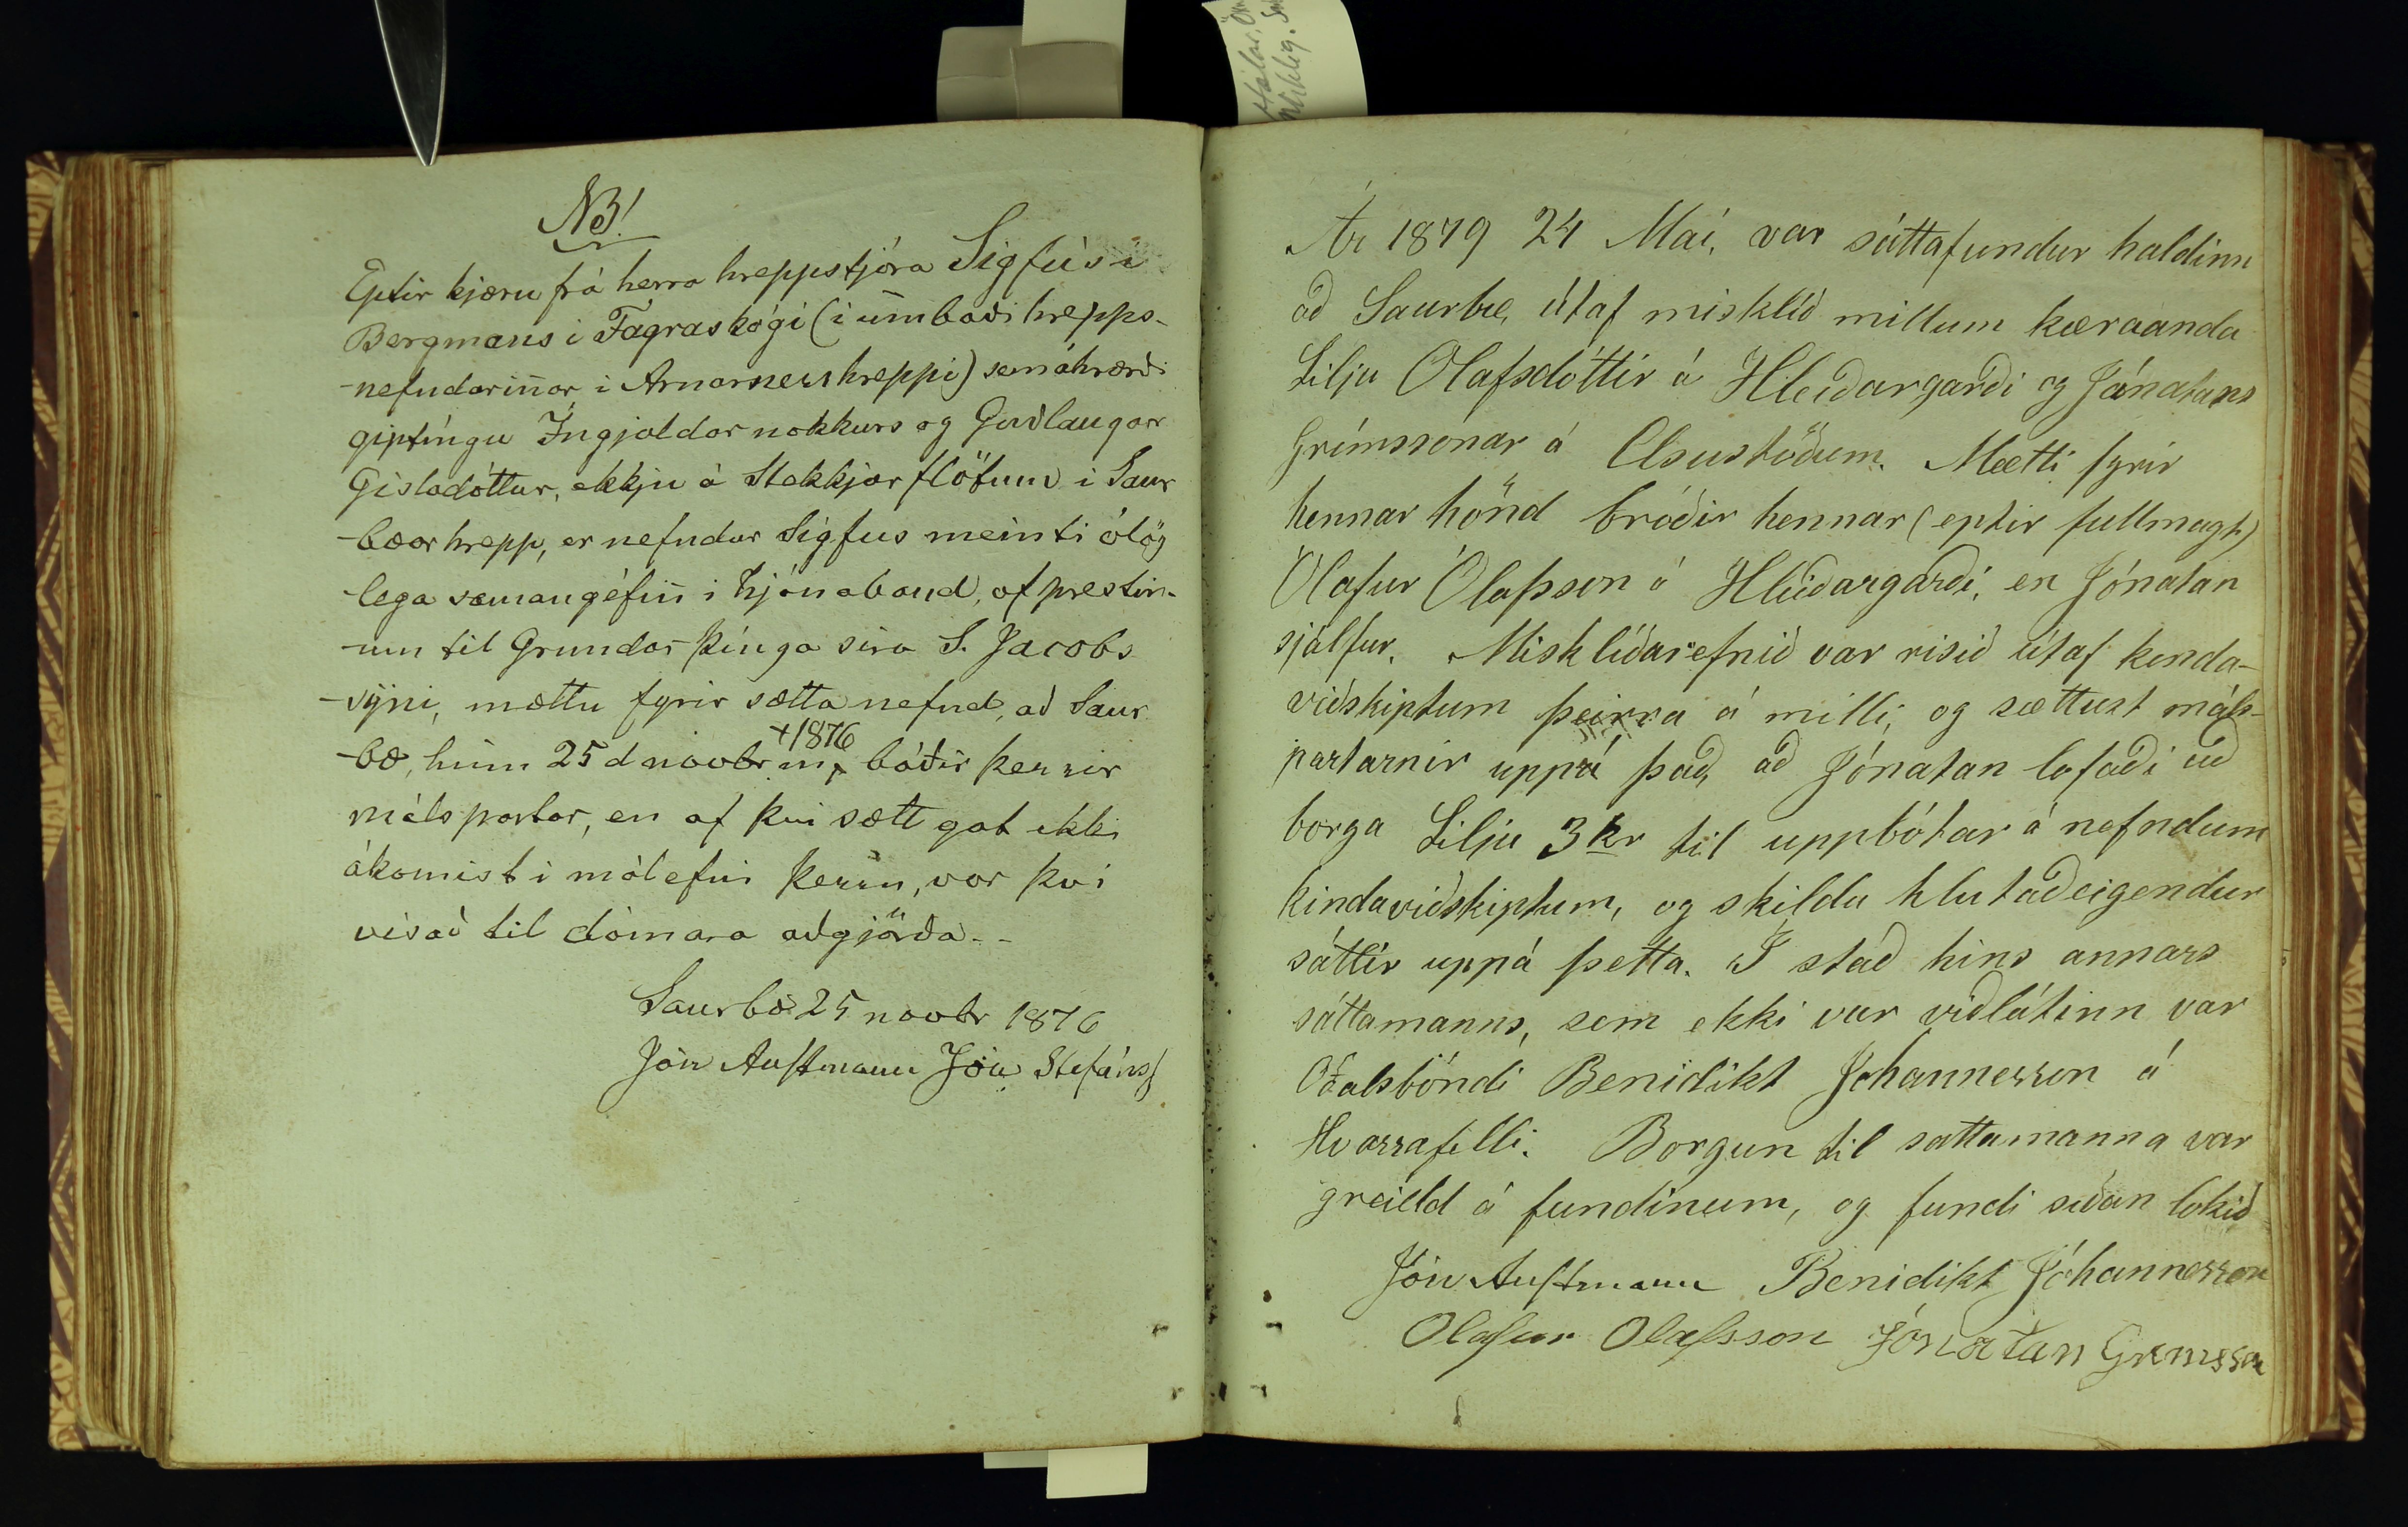 NB!
Eptir kjæru frá herra hreppstjóra Sigfúsi
Bergmans i Fagraskógi (i umboði hrepps-
-nefndarinnar i Arnarneshreppi) sem áhrærdi
giptíngu Íngjaldar nokkurs og Guðlaugar
Gisladóttur, ekkju á Stekkjarflötum i Saur
-bæarhrepp, er nefndur Sigfus meinti ólög
-lega samangéfin i hjónaband, af prestin-
-um til Grundar þínga sira S. Jacobs
-sýni, mættu fyrir sætta nefnd, að Saur
-bæ, hinn 25 d novbr m, +1876 báðir þessir
málspartar, en af þvi sætt gat ekki
ákomist i málefni þessu, var þvi
visað til dómara aðgjörða--
Saurbæ 25 novbr 1876
Jón Austmann Jón Stefánss
Ár 1879 24 Mai, var sáttafundur haldinn
að Saurbæ, útaf misklíð millum kæraanda
Lilju Olafsdóttir á Hleiðargarði og Jónatans
Grímssonar á Úlsustöðum. Mætti fyrir
hennar hönd bróðir hennar (eptir fullmagt)
Ólafur Ólafsson á Hleiðargarði, en Jónatan
sjálfur. Misklíðarefnið var risið útaf kinda-
viðskiptum þeirra á milli, og sættust máls-
partarnir uppá það, að Jónatan lofaði að
borga Lilju 3 kr til uppbótar á nefndum
kindaviðskiptum, og skildu hlutaðeigendur
sáttir uppá þetta. I stað hins annars
sáttamanns, sem ekki var viðlátinn var
Óðalsbóndi Benidikt Johannesson á
Hvassafelli. Borgun til sattamanna var
greidd á fundinum, og fundi siðan lokið
Jón Austmann Benidikt Jóhannesson
Olafur Olafsson Jónatan Grimsson